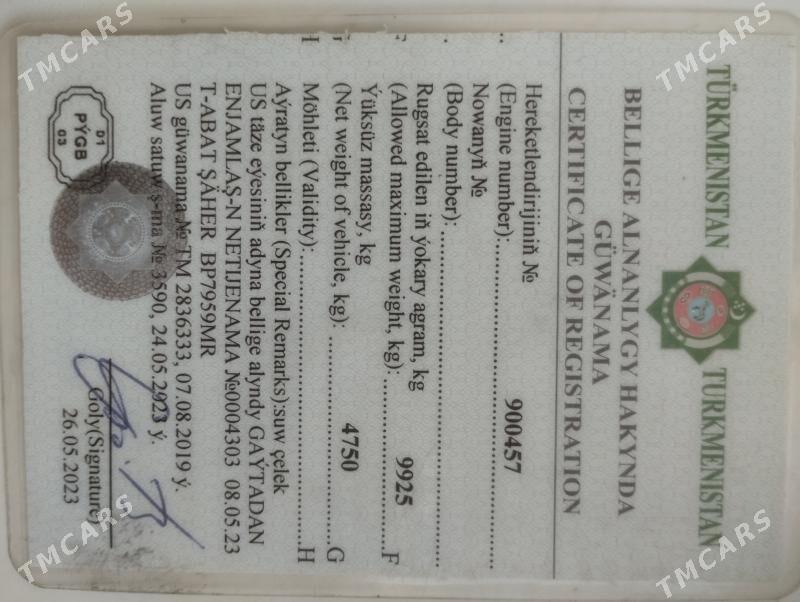 TÜRKMENISTAN TURKMENISTAN
BELLIGE ALNANLYGY HAKYNDA
GÜWÄNAMA
CERTIFICATE OF REGISTRATION
Hereketlendirijiniň №
(Engine number):..........900457..........
Nowanyň №
(Body number):..........
Rugsat edilen iň ýokary agram, kg
(Allowed maximum weight, kg):..........9925..........F
Ýüksüz massasy, kg
(Net weight of vehicle, kg):..........4750..........G
Möhleti (Validity):..........H
Aýratyn bellikler (Special Remarks):suw çelek
US täze eýesiniň adyna bellige alyndy GAÝTADAN
ENJAMLAŞ-N NETIJENAMA №0004303 08.05.23
T-ABAT ŞÄHER BP7959MR
US güwanama № TM 2836333, 07.08.2019 ý.
Aluw satuw ş-ma № 3590, 24.05.2923 ý.
Goly(Signature)
26.05.2023
01
PÝGB
03
TMCARS
TMCARS
TMCARS
TMCARS
TMCARS